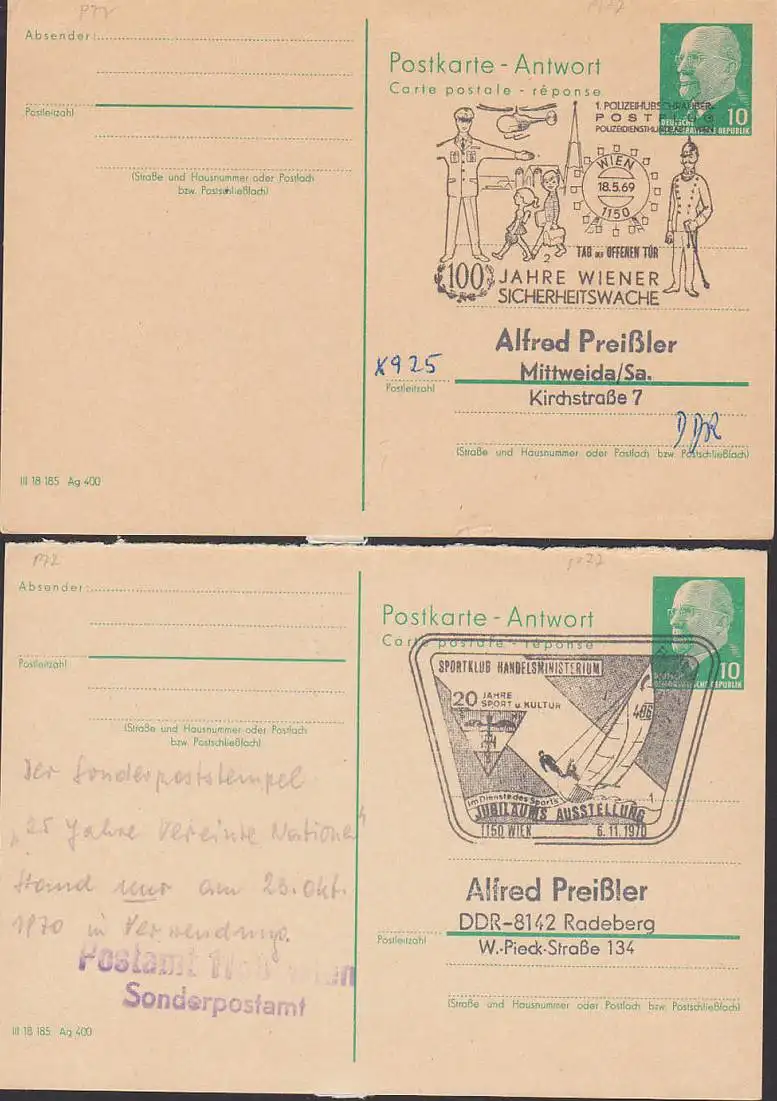 P77
Absender:
Postleitzahl
(Straße und Hausnummer oder Postfach
bzw. Postschließfach)
III 18 185 Ag 400
Postkarte - Antwort
Carte postale - réponse
10
DEUTSCHE DEMOKRATISCHE REPUBLIK
1. POLIZEIHUBSCHRAUBER-
POSTFLUG
WIEN
18.5.69
1150
2
TAG DER OFFENEN TÜR
100 JAHRE WIENER
SICHERHEITSWACHE
Alfred Preißler
Mittweida/Sa.
Kirchstraße 7
X925
Postleitzahl
DDR
(Straße und Hausnummer oder Postfach bzw. Postschließfach)
P77
Absender:
Postleitzahl
(Straße und Hausnummer oder Postfach
bzw. Postschließfach)
Der Sonderpoststempel
„25 Jahre Vereinte Nationen“
stand nur am 23. Okt.
1970 in Verwendung.
Postamt Wien
Sonderpostamt
III 18 185 Ag 400
Postkarte - Antwort
Carte postale - réponse
10
DEUTSCHE DEMOKRATISCHE REPUBLIK
SPORTKLUB HANDELSMINISTERIUM
20 JAHRE
SPORT u. KULTUR
406
Im Dienste des Sports
1
JUBILÄUMS AUSSTELLUNG
1150 WIEN 6.11.1970
Alfred Preißler
DDR-8142 Radeberg
Postleitzahl
W.-Pieck-Straße 134
(Straße und Hausnummer oder Postfach bzw. Postschließfach)